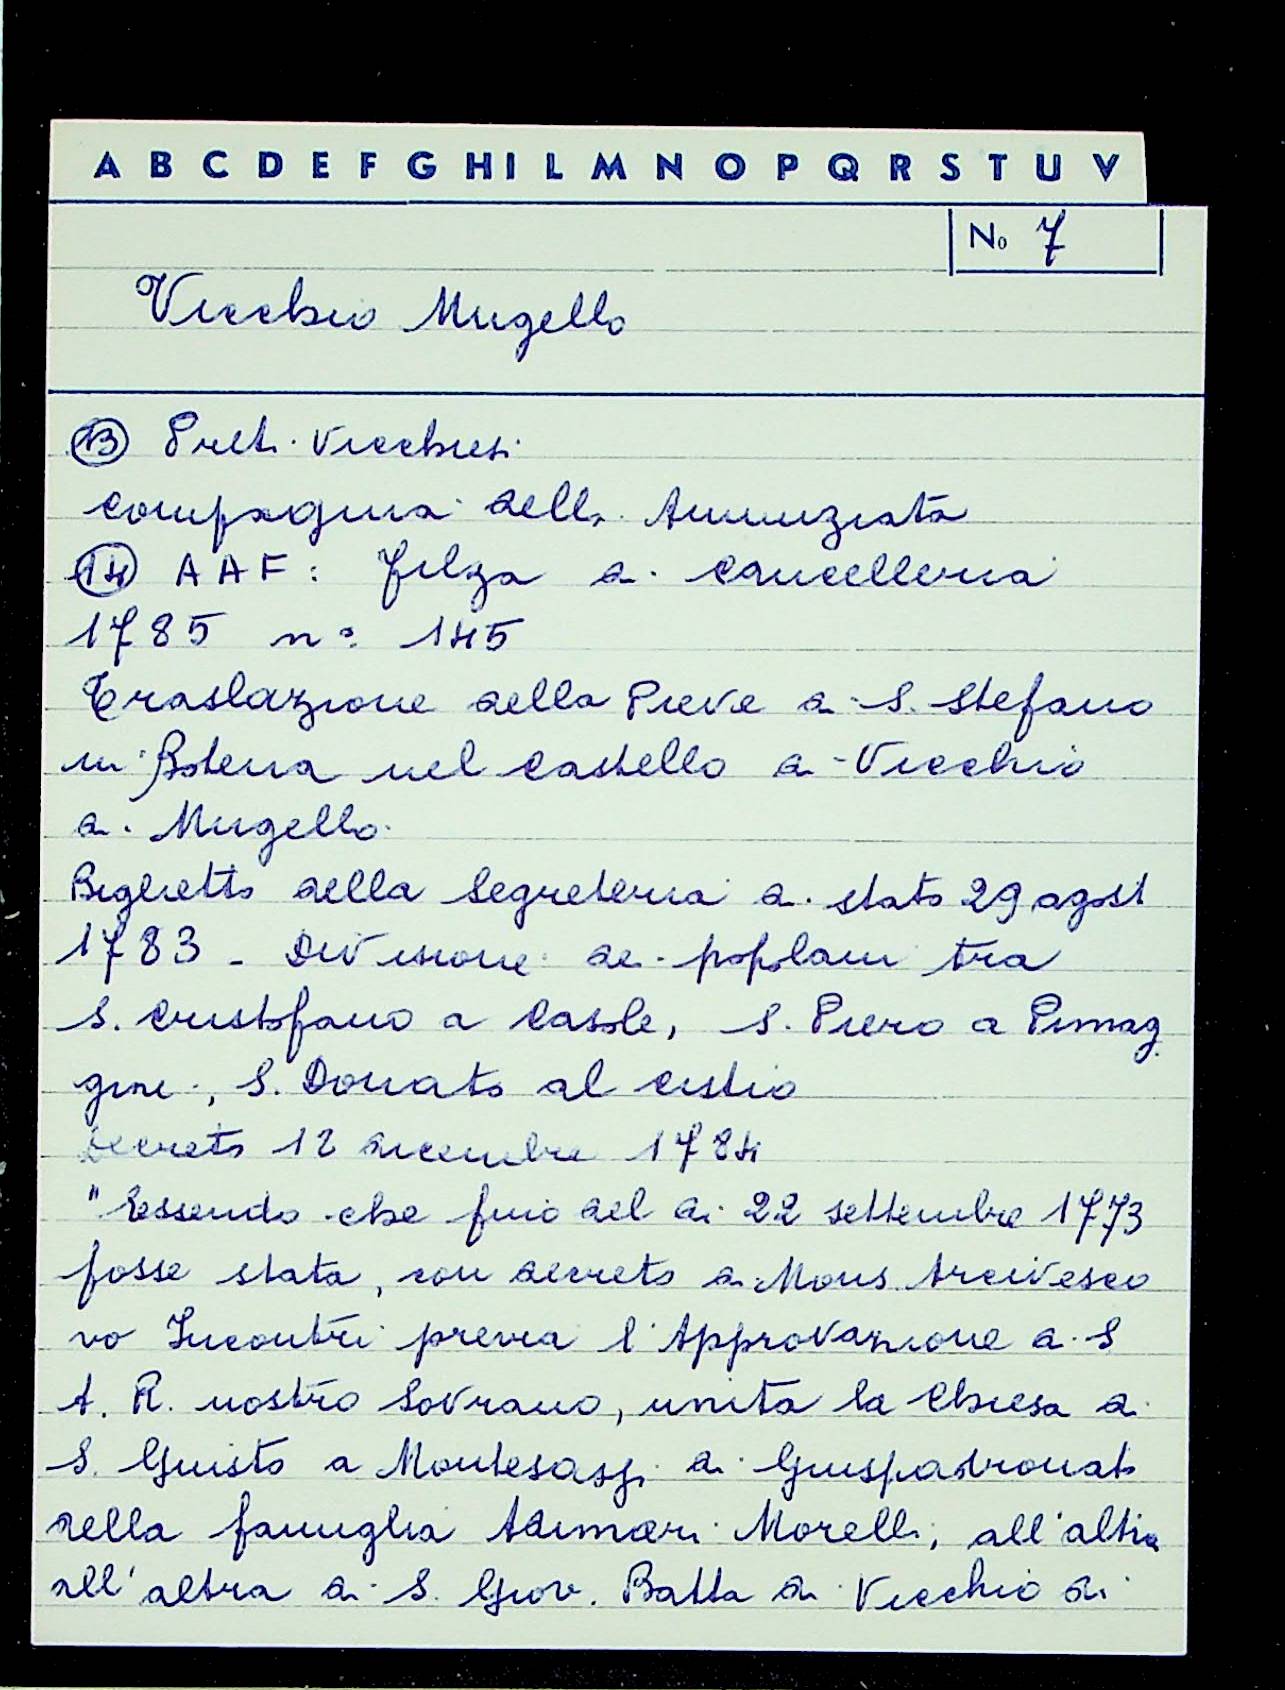 A B C D E F G H I L M N O P Q R S T U V
No 7
Vicchio Mugello
13 Preti Vicchiesi
compagnia della Annunziata
14 AAF: filza di cancelleria
1785 n° 145
Traslazione della Pieve di S. Stefano
in Botena nel castello di Vicchio
di Mugello
Biglietto della Segreteria di stato 29 agost
1783 - Divisione dei popolani tra
S. Cristofano a Casole, S. Piero a Pimag
gine, S. Donato al Cistio
Decreto 12 dicembre 1784
"Essendo che fino del dì 22 settembre 1773
fosse stata, con decreto di Mons. Arcivesco
vo Incontri previa l'Approvazione di S
A. R. nostro Sovrano, unita la Chiesa di
S. Giusto a Montesassi di Giuspadronato
della famiglia Adimari Morelli, all'altra
all'altra di S. Giov. Batta di Vicchio di